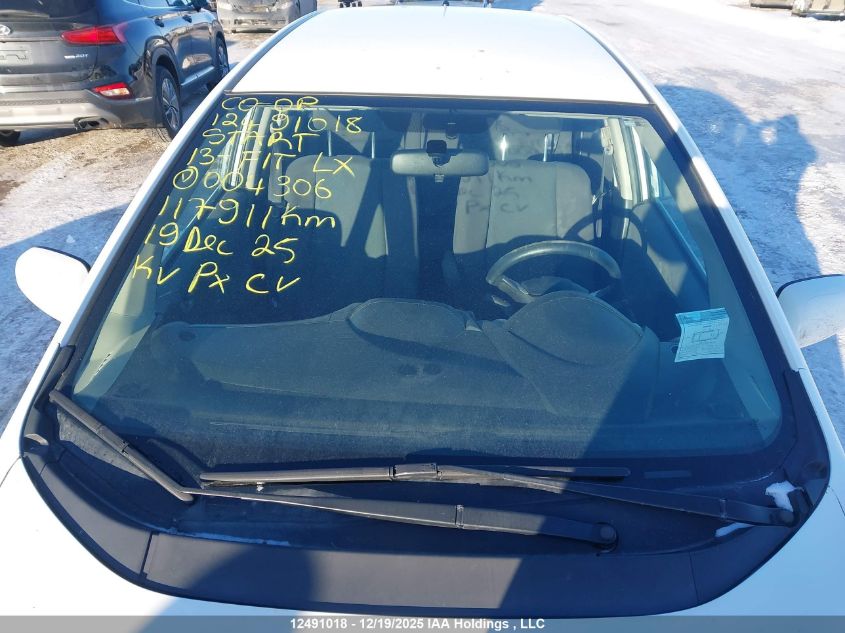 CO-OP
12491018
START
13 FIT LX
004306
117911 Km
19 Dec 25
KV PX CV
Km
25
PX CV
2.0T
12491018 - 12/19/2025 IAA Holdings , LLC